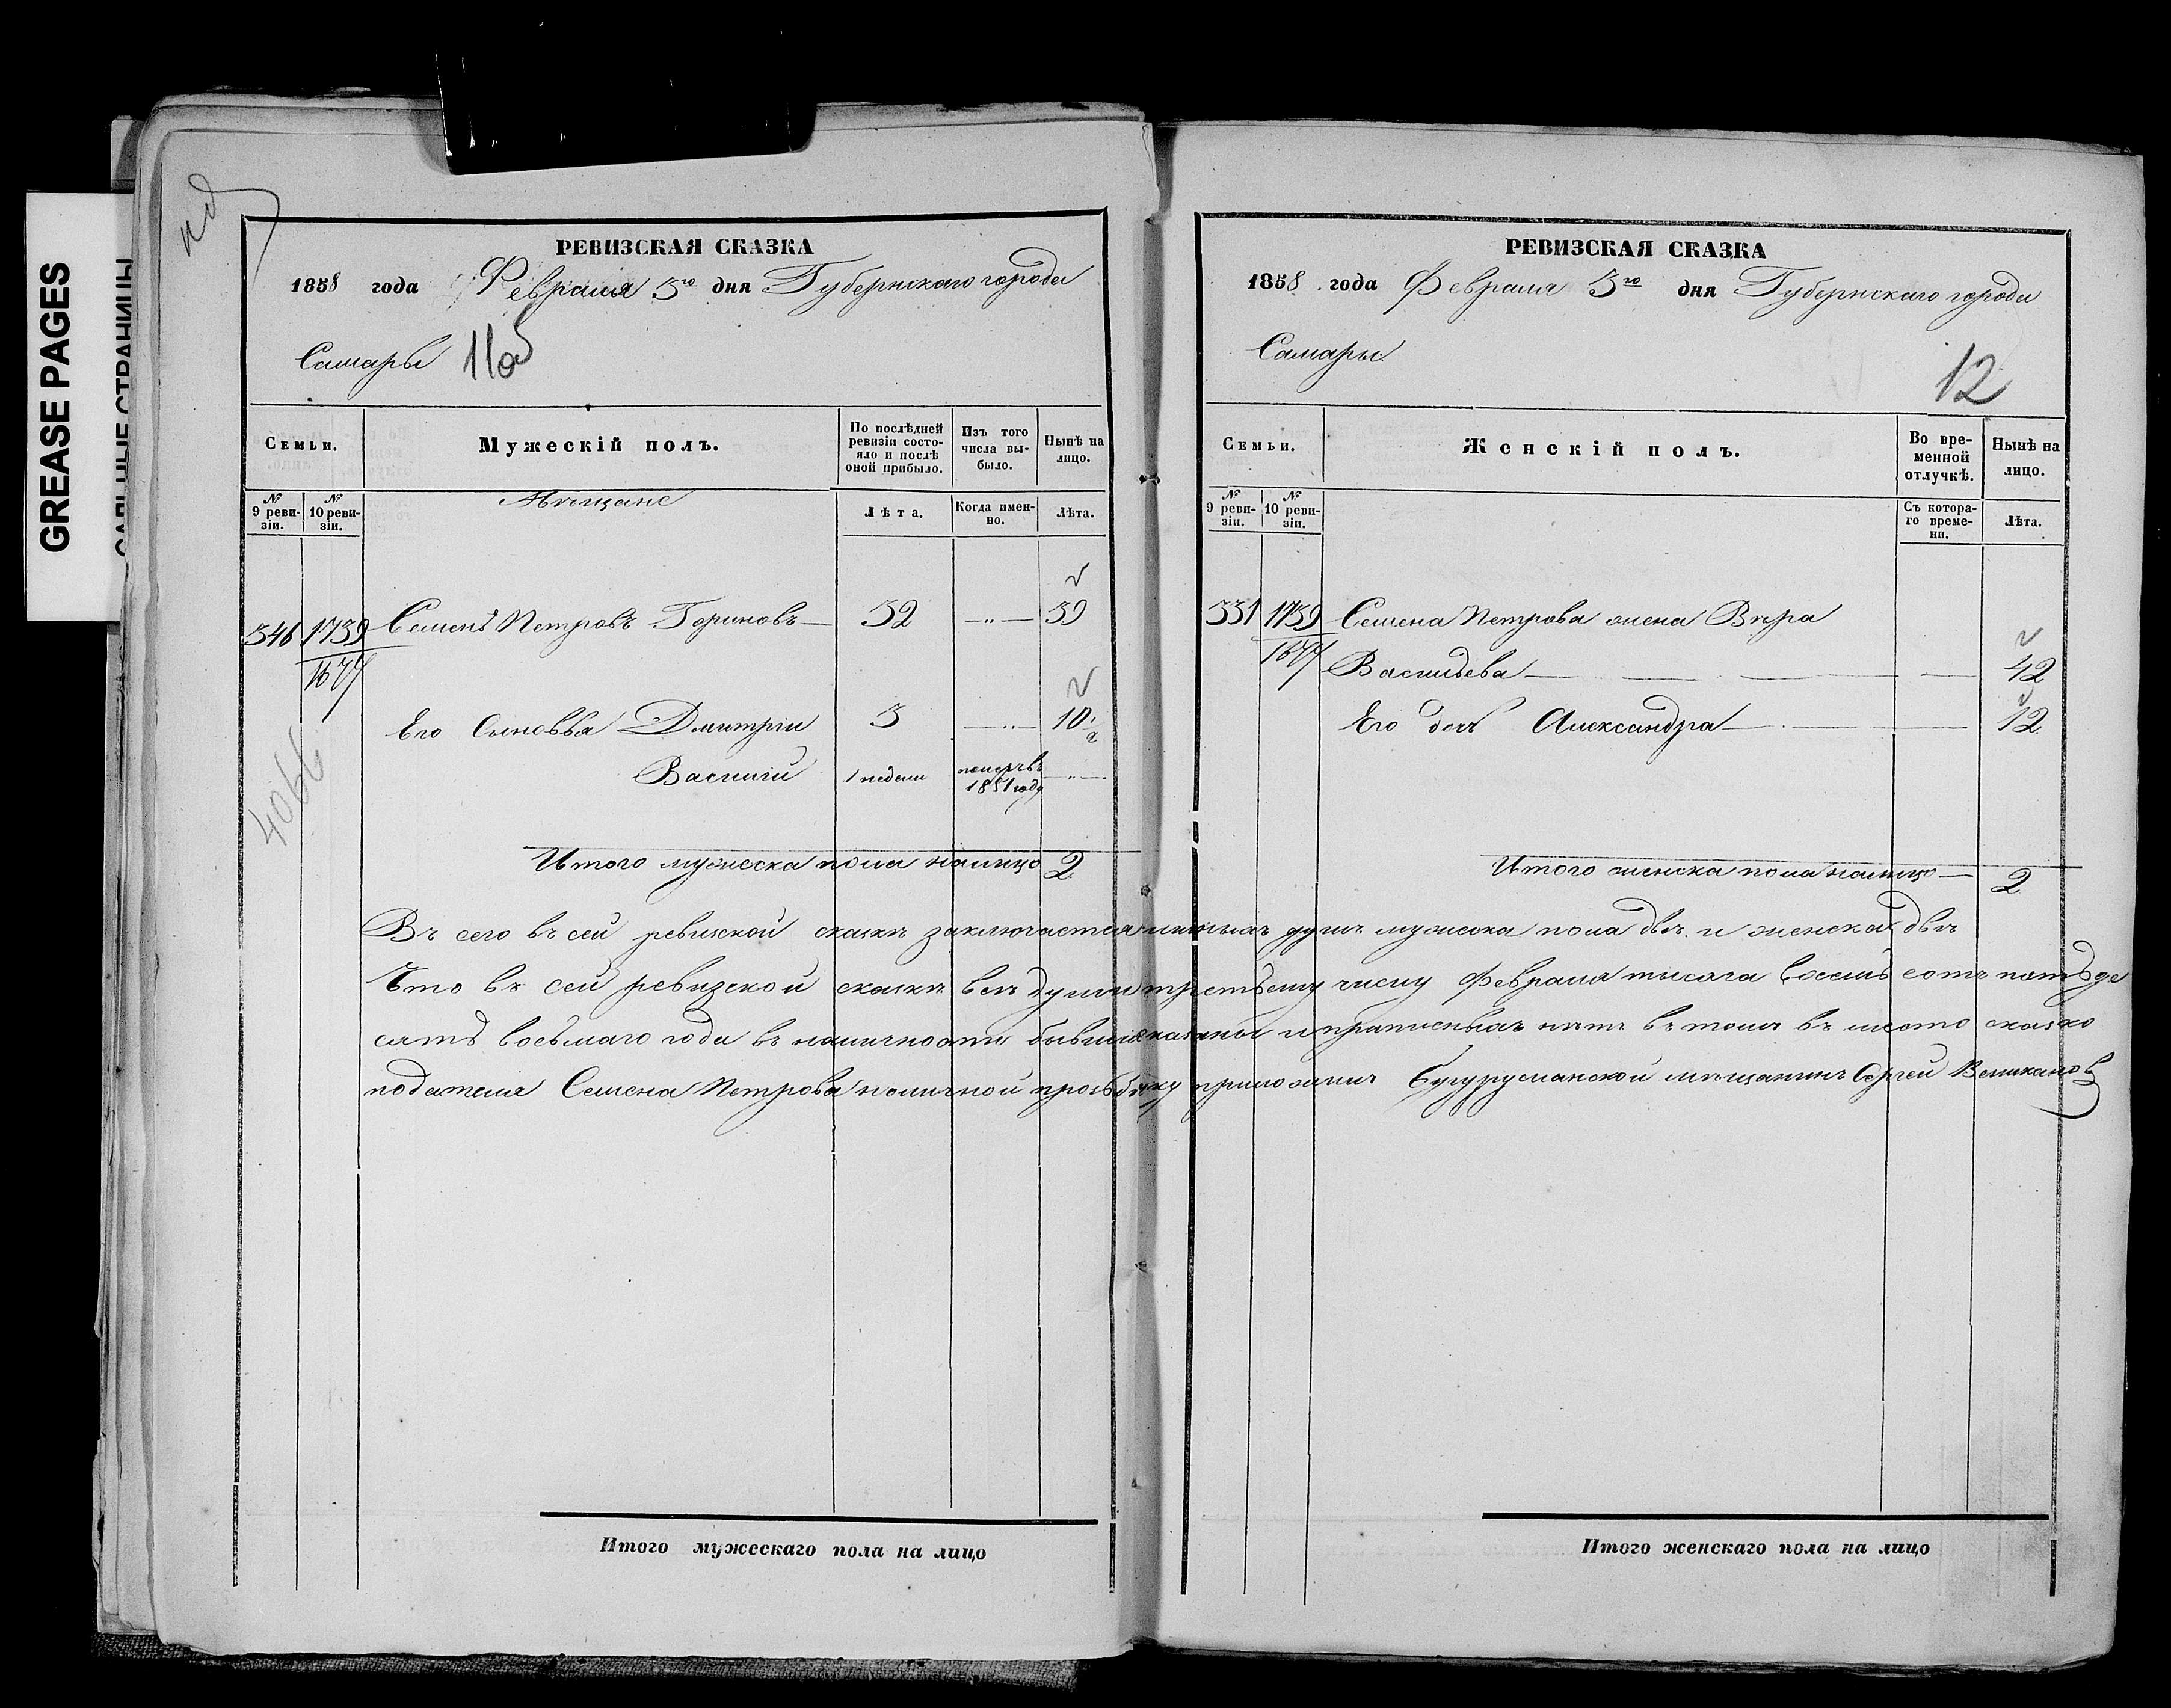 GREASE PAGES
РЕВИЗСКАЯ СКАЗКА
1858 года Февраля 3го дня Губернскаго города
Самары 11об
Семьи.
Мужескій полъ.
По послѣдней ревизіи состояло и послѣ оной прибыло.
Изъ того числа выбыло.
Нынѣ на лицо.
№ 9 ревизіи.
№ 10 ревизіи.
Мѣщане
Лѣта.
Когда именно.
Лѣта.
346 1739 Семенъ Петровъ Гориновъ 32 — 39
1677
Его Сыновья Дмитрій 3 — 10
Василій 1 недели померъ въ 1851 году —
4066
Итого мужеска пола налицо 2
РЕВИЗСКАЯ СКАЗКА
1858 года Февраля 3го дня Губернскаго города
Самары
12
Семьи.
Женскій полъ.
Во временной отлучкѣ.
Нынѣ на лицо.
№ 9 ревизіи.
№ 10 ревизіи.
Съ котораго времени.
Лѣта.
331 1739 Семена Петрова жена Вѣра
1677 Васильева — 42
Его дочь Александра — 12
Итого женска пола налицо — 2
Въ сего въ сей ревиской сказкѣ заключается душъ мужеска пола двѣ и женска двѣ
Что въ сей ревизской сказкѣ всѣ души третьему числу Февраля тысяча восемь сотъ пятьде
сятъ восьмаго года въ наличности бывшія показаны и прописныхъ нѣтъ въ томъ въ место сказко
подателя Семена Петрова по личной прозьбѣ руку приложилъ Бугурусланской мѣщанинъ Сергей Великановъ
Итого мужескаго пола на лицо
Итого женскаго пола на лицо